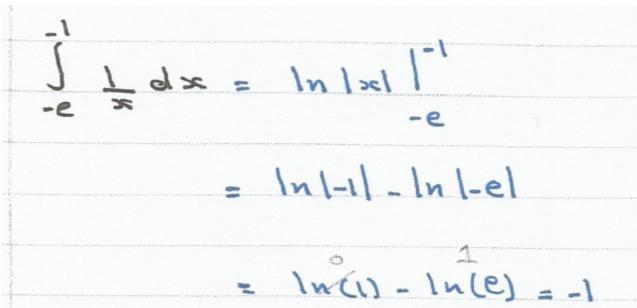 ∫_{-e}^{-1} 1/x dx = ln|x| |_{-e}^{-1}
= ln|-1| - ln|-e|
0 1
= ln(1) - ln(e) = -1